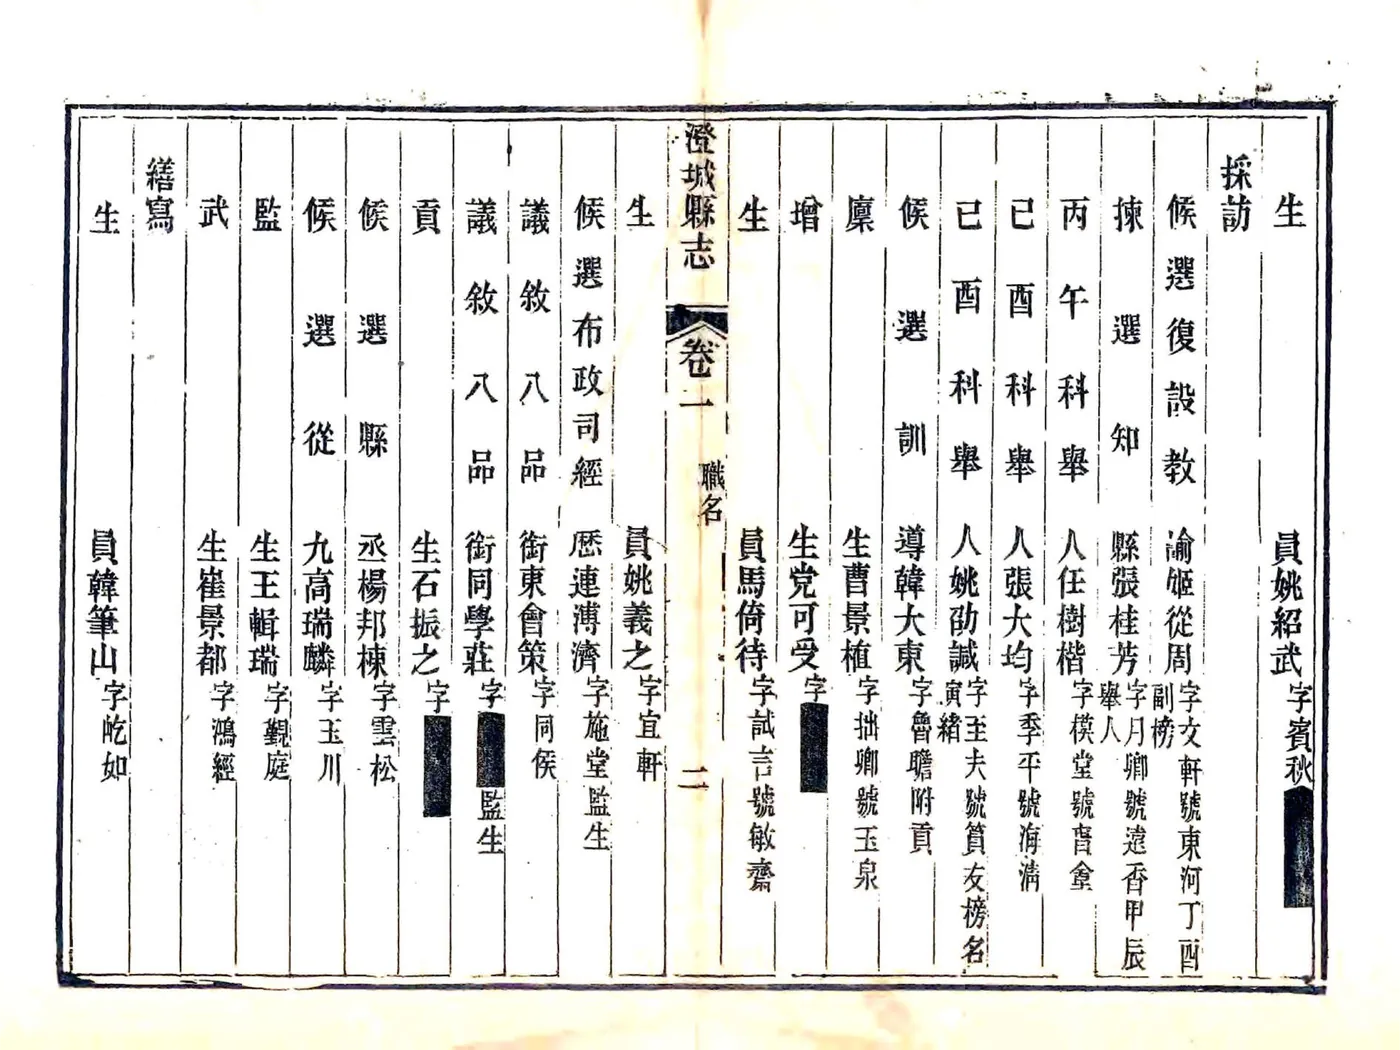 生員姚紹武字賓秋
採訪
候選復設教諭姬從周字文軒號東河丁酉副榜
揀選知縣張桂芳字月卿號遠香甲辰舉人
丙午科舉人任樹楷字模堂號
己酉科舉人張大均字季平號海清
己酉科舉人姚劭諴字至夫號質友榜名寅緒
候選訓導韓大東字魯瞻附貢
廩生曹景植字拙卿號玉泉
增生党可受字
生員馬倚待字試言號敏齋
澄城縣志
卷一
職名
二
生員姚義之字宜軒
候選布政司經歷連溥濟字施堂監生
議敘八品銜東會策字同侯
議敘八品銜同學莊字監生
貢生石振之字
候選縣丞楊邦棟字雲松
候選從九高瑞麟字玉川
監生王輯瑞字覲庭
武生崔景都字鴻經
繕寫
生員韓筆山字屹如